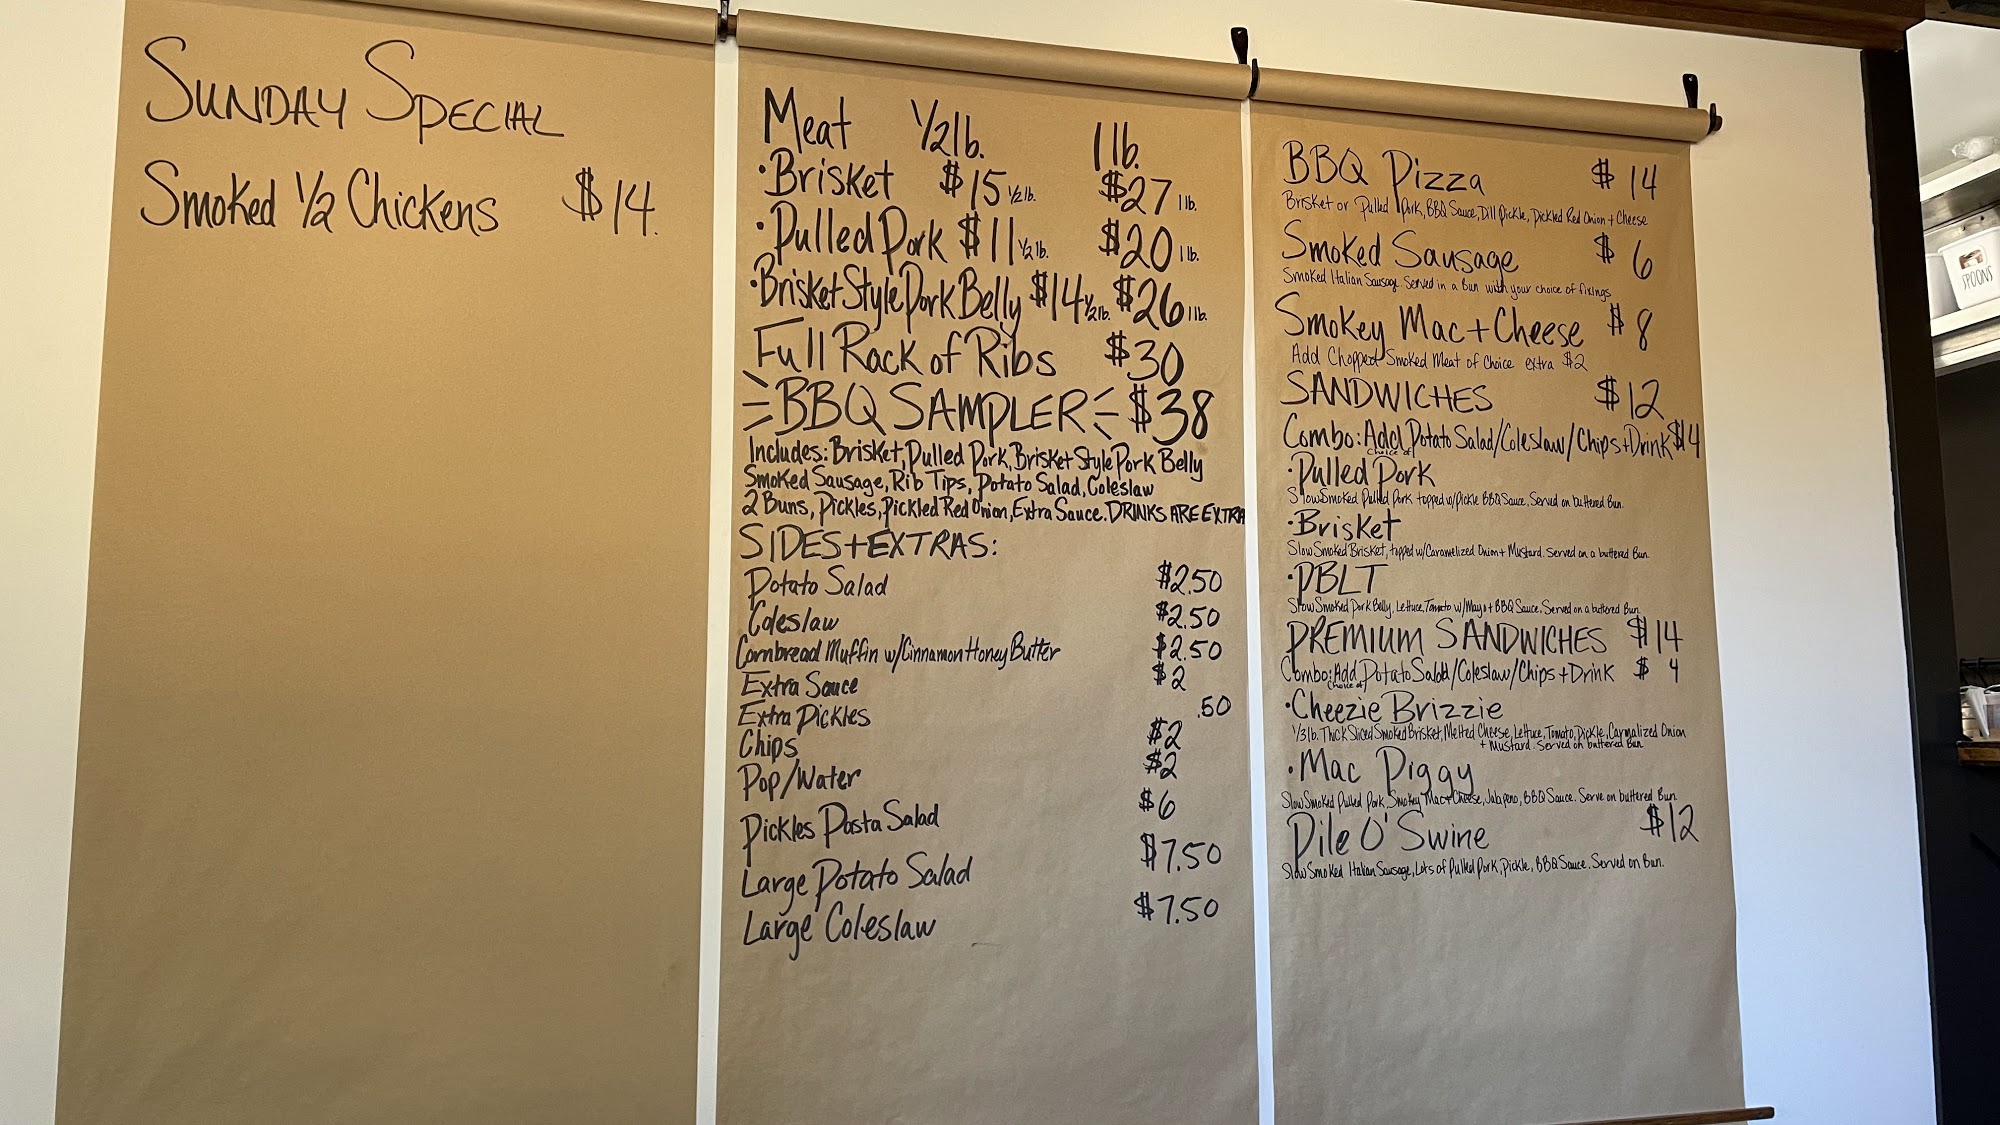 SUNDAY SPECIAL
Smoked 1/2 Chickens $14.
Meat 1/2lb. 1lb.
·Brisket $15 1/2lb. $27 1lb.
·Pulled Pork $11 1/2lb. $20 1lb.
·Brisket Style Pork Belly $14 1/2lb. $26 1lb.
Full Rack of Ribs $30
BBQ SAMPLER $38
Includes: Brisket, Pulled Pork, Brisket Style Pork Belly
Smoked Sausage, Rib Tips, Potato Salad, Coleslaw
2 Buns, Pickles, Pickled Red Onion, Extra Sauce. DRINKS ARE EXTRA
SIDES+EXTRAS:
Potato Salad $2.50
Coleslaw $2.50
Cornbread Muffin w/Cinnamon Honey Butter $2.50
Extra Sauce $2
Extra Pickles .50
Chips $2
Pop/Water $2
Pickles Pasta Salad $6
Large Potato Salad $7.50
Large Coleslaw $7.50
BBQ Pizza $14
Brisket or Pulled Pork, BBQ Sauce, Dill Pickle, Pickled Red Onion + Cheese
Smoked Sausage $6
Smoked Italian Sausage. Served in a Bun with your choice of fixings
Smokey Mac + Cheese $8
Add Chopped Smoked Meat of Choice extra $2
SANDWICHES $12
Combo: Add Potato Salad/Coleslaw/Chips+Drink $14
choice of
·Pulled Pork
Slow Smoked Pulled Pork topped w/Pickle BBQ Sauce, Served on buttered Bun.
·Brisket
Slow Smoked Brisket, topped w/Caramelized Onion + Mustard. Served on a buttered Bun.
·PBLT
Slow Smoked Pork Belly, Lettuce, Tomato w/Mayo + BBQ Sauce. Served on a buttered Bun.
PREMIUM SANDWICHES $14
Combo: Add Potato Salad/Coleslaw/Chips+Drink $4
choice of
·Cheezie Brizzie
1/3 lb. Thick Sliced Smoked Brisket, Melted Cheese, Lettuce, Tomato, Pickle, Carmalized Onion
+ Mustard. Served on buttered Bun
·Mac Piggy
Slow Smoked Pulled Pork, Smokey Mac+Cheese, Jalapeno, BBQ Sauce. Serve on buttered Bun.
Pile O' Swine $12
Slow Smoked Italian Sausage, Lots of Pulled Pork, Pickle, BBQ Sauce. Served on Bun.
SPOONS